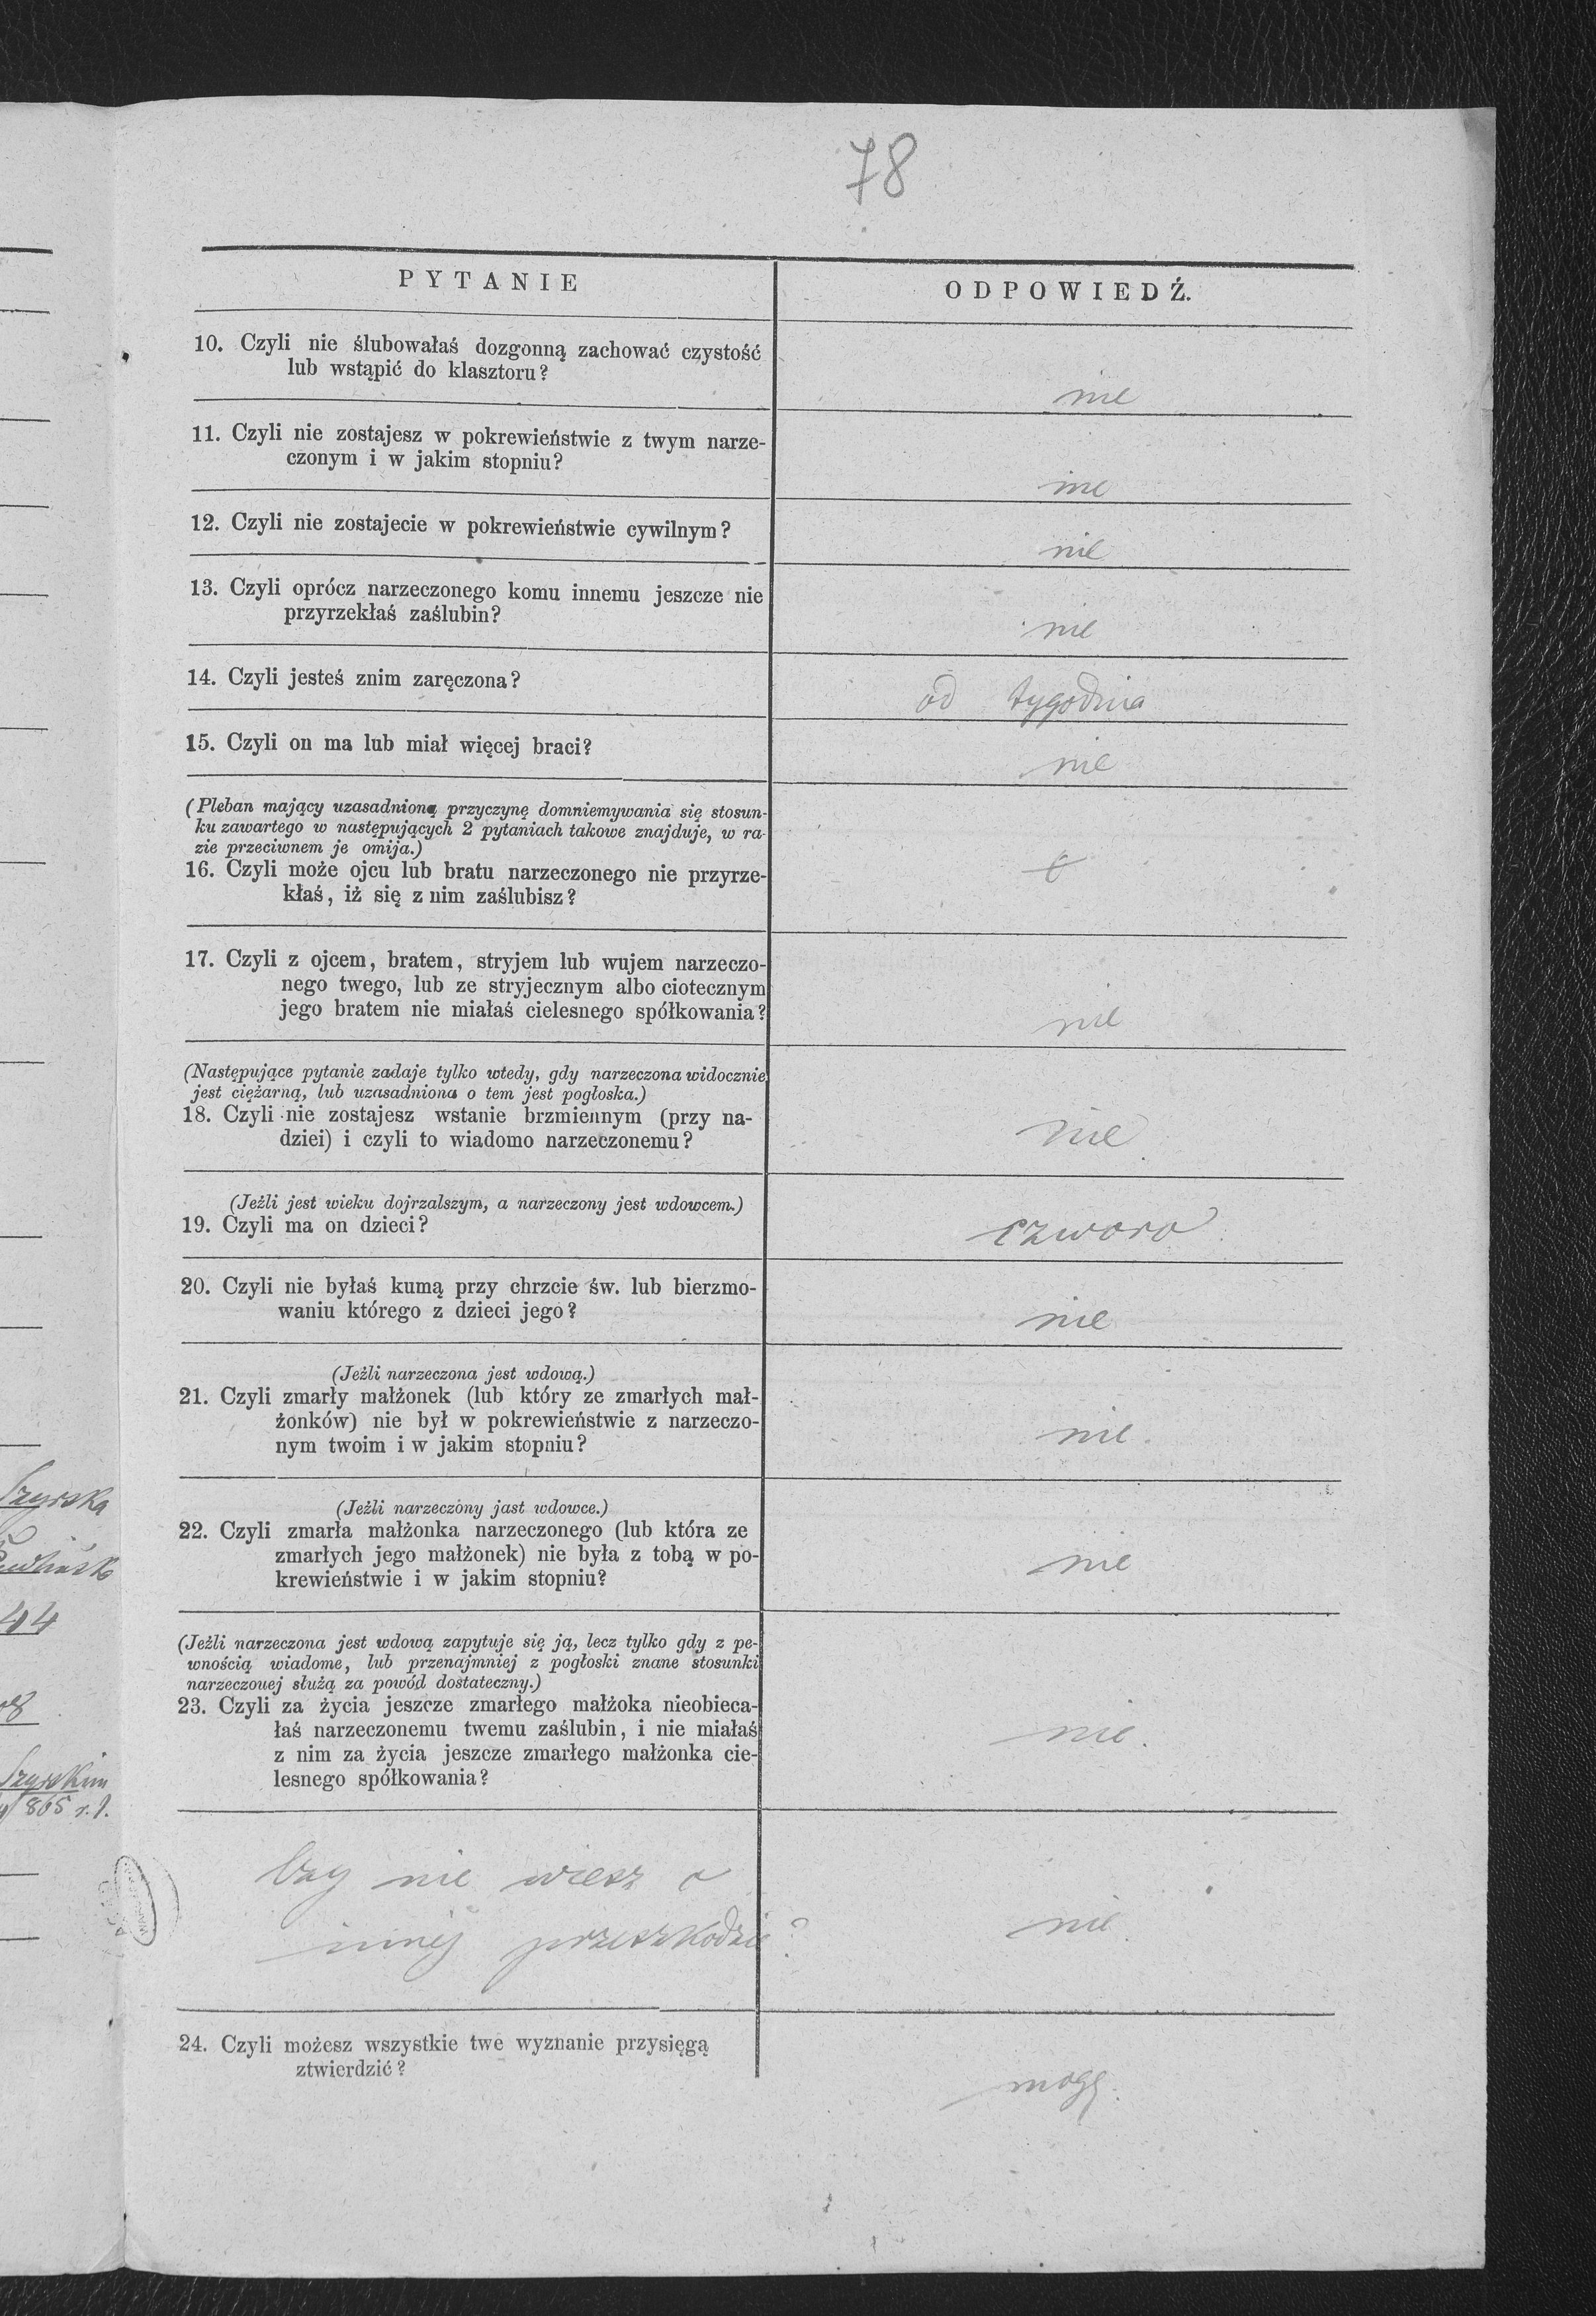 78
PYTANIE
ODPOWIEDŹ.
10. Czyli nie ślubowałaś dozgonną zachować czystość
lub wstąpić do klasztoru?
nie
11. Czyli nie zostajesz w pokrewieństwie z twym narze-
czonym i w jakim stopniu?
nie
12. Czyli nie zostajecie w pokrewieństwie cywilnym?
nie
13. Czyli oprócz narzeczonego komu innemu jeszcze nie
przyrzekłaś zaślubin?
nie
14. Czyli jesteś znim zaręczona?
od tygodnia
15. Czyli on ma lub miał więcej braci?
nie
(Pleban mający uzasadnioną przyczynę domniemywania się stosun-
ku zawartego w następujących 2 pytaniach takowe znajduje, w ra-
zie przeciwnem je omija.)
16. Czyli może ojcu lub bratu narzeczonego nie przyrze-
kłaś, iż się z nim zaślubisz?
17. Czyli z ojcem, bratem, stryjem lub wujem narzeczo-
nego twego, lub ze stryjecznym albo ciotecznym
jego bratem nie miałaś cielesnego spółkowania?
nie
(Następujące pytanie zadaje tylko wtedy, gdy narzeczona widocznie
jest ciężarną, lub uzasadniona o tem jest pogłoska.)
18. Czyli nie zostajesz wstanie brzmiennym (przy na-
dziei) i czyli to wiadomo narzeczonemu?
nie
(Jeżli jest wieku dojrzalszym, a narzeczony jest wdowcem.)
19. Czyli ma on dzieci?
czworo
20. Czyli nie byłaś kumą przy chrzcie św. lub bierzmo-
waniu którego z dzieci jego?
nie
(Jeżli narzeczona jest wdową.)
21. Czyli zmarły małżonek (lub który ze zmarłych mał-
żonków) nie był w pokrewieństwie z narzeczo-
nym twoim i w jakim stopniu?
nie.
(Jeżli narzeczony jast wdowce.)
22. Czyli zmarła małżonka narzeczonego (lub która ze
zmarłych jego małżonek) nie była z tobą w po-
krewieństwie i w jakim stopniu?
nie
(Jeżli narzeczona jest wdową zapytuje się ją, lecz tylko gdy z pe-
wnością wiadome, lub przenajmniej z pogłoski znane stosunki
narzeczouej służą za powód dostateczny.)
23. Czyli za życia jeszcze zmarłego małżoka nieobieca-
łaś narzeczonemu twemu zaślubin, i nie miałaś
z nim za życia jeszcze zmarłego małżonka cie-
lesnego spółkowania?
nie.
Czy nie wiesz o
innej przeszkodzie?
nie.
24. Czyli możesz wszystkie twe wyznanie przysięgą
ztwierdzić?
mogę.
44
865 r.